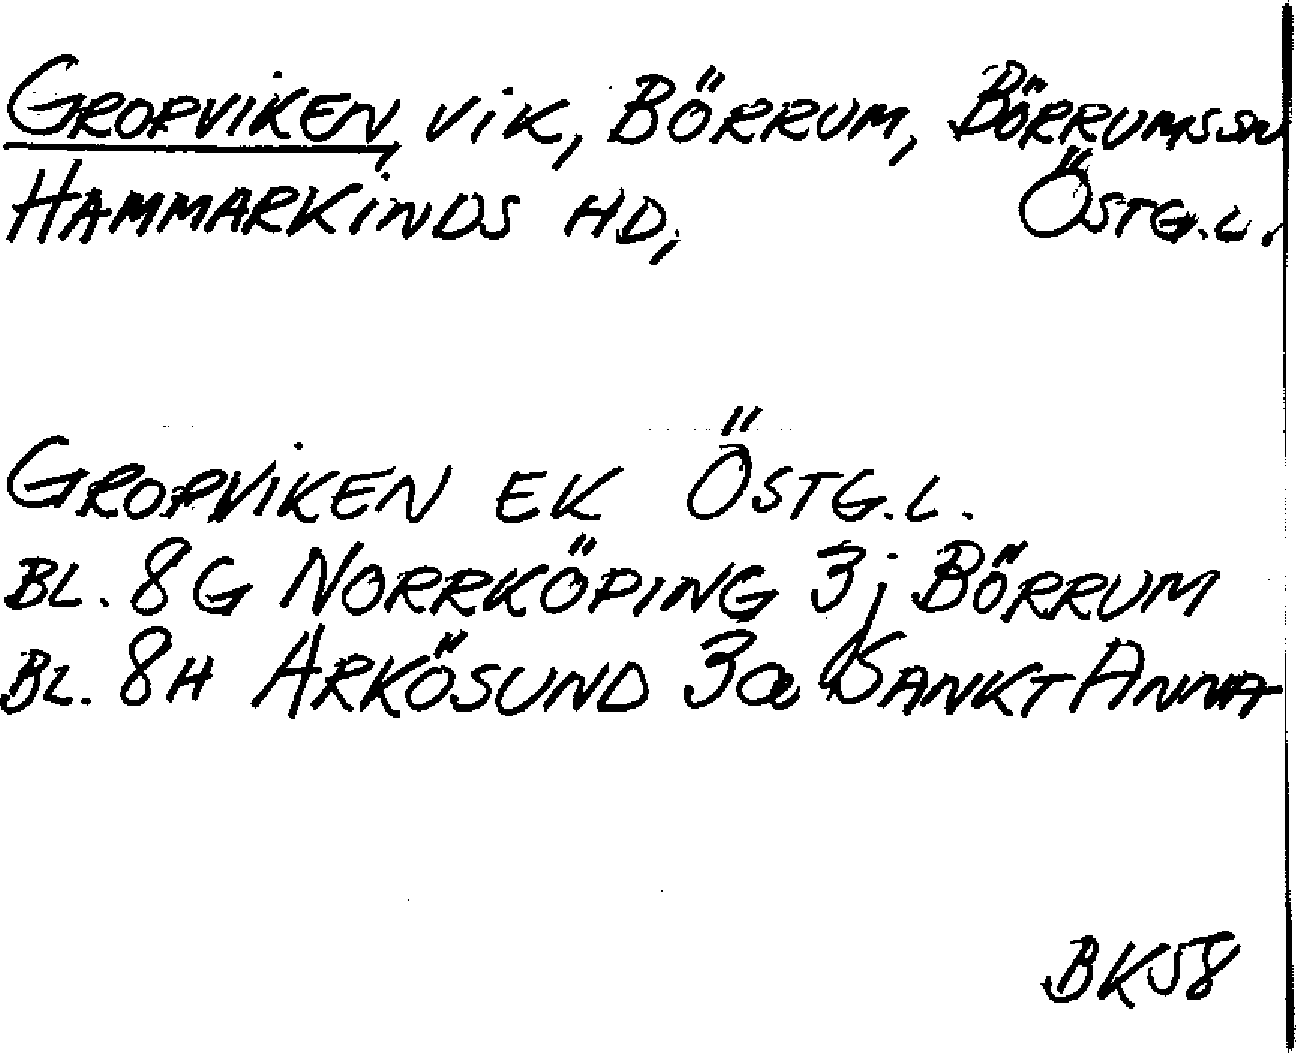 GROPVIKEN, VIK, BÖRRUM, BÖRRUMS SN
HAMMARKINDS HD, ÖSTG.L.
GROPVIKEN EK ÖSTG.L.
BL. 8G NORRKÖPING 3j BÖRRUM
BL. 8H ARKÖSUND 3a SANKT ANNA
BK58